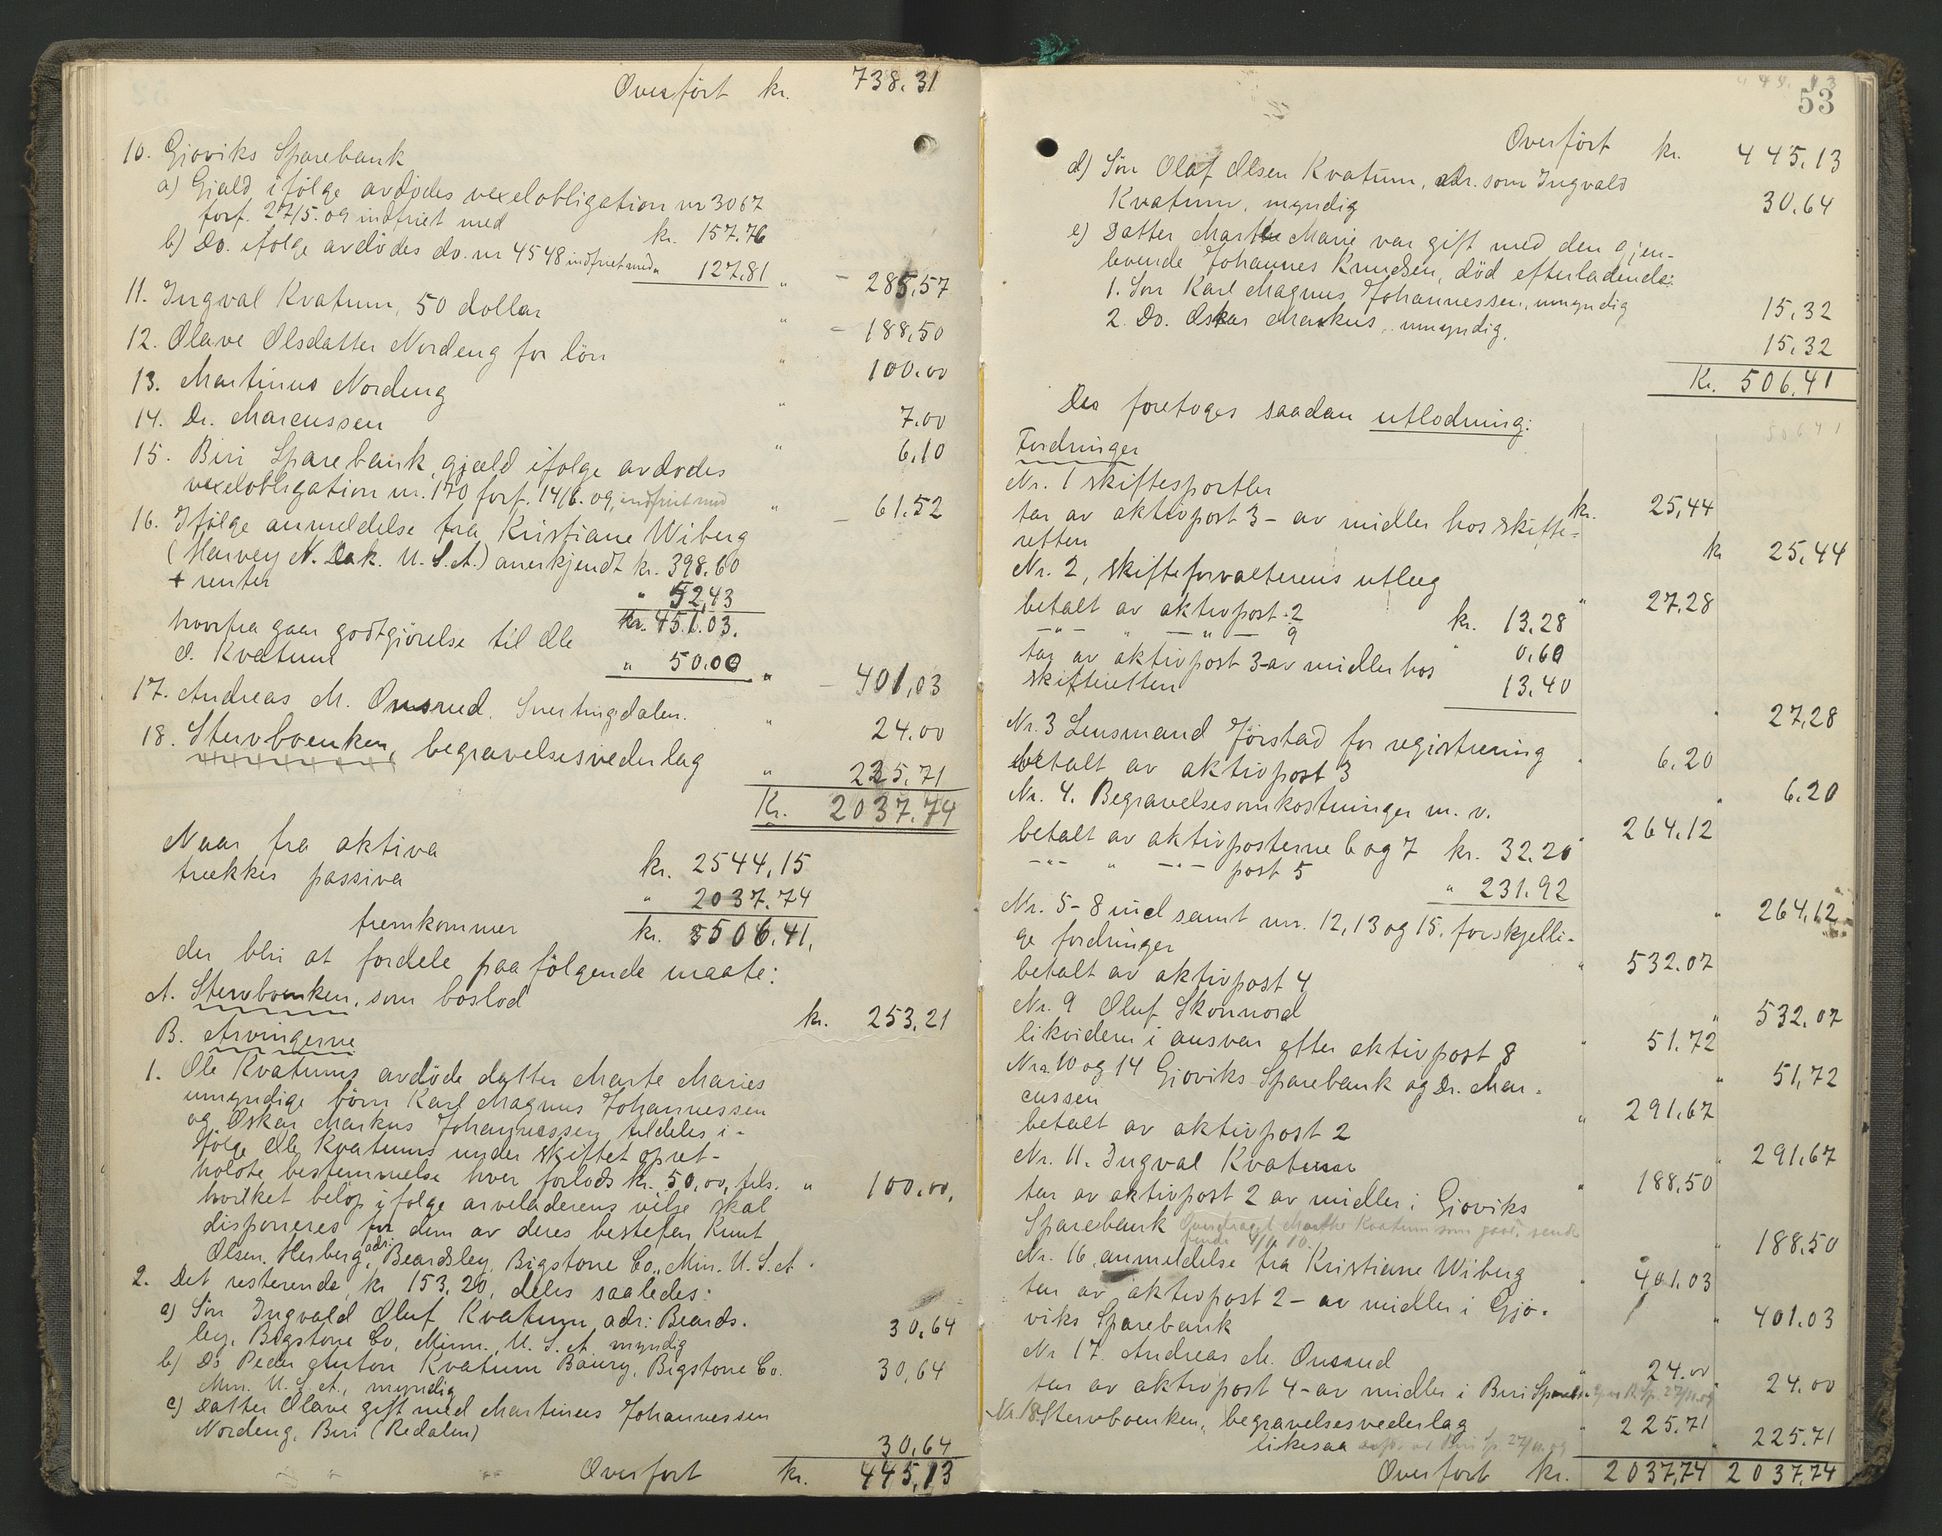 Overført kr. 738.31
10. Gjøviks Sparebank
a) Gjæld ifølge avdødes vexelobligation nr 3067
forf. 27/5.09 indfriet med kr. 157.76
b) Do. ifølge avdødes do. nr 4548 indfriet med " 127.81 " - 285.57
11. Ingval Kvatum, 50 dollar " - 188.50
12. Olave Olsdatter Nordeng for løn " 100.00
13. Martinus Nordeng " 7.00
14. Dr. Marcussen " 6.10
15. Biri Sparebank, gjæld ifølge avdødes
vexelobligation nr. 170 forf. 14/6.09, indfriet med " - 61.52
16. Ifølge anmeldelse fra Kristiane Wiberg
(Harvey N. Dak. U.S.A.) anerkjendt kr. 398.60
+ renter " 52,43
kr. 451.03.
hvorfra gaar godtgjørelse til Ole
O. Kvatum " 50.00 " - 401,03
17. Andreas M. Onsrud. Snertingdalen. " 24.00
18. Stervboenken, begravelsesvederlag " 225.71
Kr. 2037.74
Naar fra aktiva kr. 2544,15
trækkes passiva " 2037.74
fremkommer kr. 506.41,
der bli at fordele paa følgende maate:
A. Stervboenken, som boslod kr. 253.21
B. Arvingerne
1. Ole Kvatums avdøde datter Marte Maries
umyndige børn Karl Magnus Johannessen
og Oskar Markus Johannessen tildeles i-
følge Ole Kvatums under skiftet opret-
holdte bestemmelse hver forlods kr. 50,00, tils. " 100.00,
hvilket beløp ifølge arveladerens vilje skal
disponeres for dem av deres bestefar Knut
Olsen Hesberg, adr: Beardsley, Bigstone Co., Min. U.S.A.
2. Det resterende, kr 153.20, deles saaledes:
a) Søn Ingvald Oluf Kvatum, adr: Beards-
ley, Bigstone Co, Minn., U.S.A. myndig 30.64
b) Do Peder Anton Kvatum Baury, Bigstone Co.
Min. U.S.A., myndig 30,64
c) Datter Olave gift med Martinus Johannessen
Nordeng, Biri (Redalen) 30.64
Overført kr. 445,13
53
Overført kr. 445.13
d) Søn Olaf Olsen Kvatum, adr. som Ingvald
Kvatum, myndig 30.64
e) Datter Marthe Marie var gift med den gjen-
levende Johannes Knudsen, død efterladende:
1. Søn Karl Magnus Johannessen, umyndig 15,32
2. Do. Oskar Markus, umyndig. 15.32
Kr. 506.41
Der foretoges saadan utlodning:
Fordringer
Nr. 1 skiftesportler kr. 25,44
tar av aktivpost 3 - av midler hos skifte-
retten kr 25.44
Nr. 2, skifteforvalterens utlæg " 27.28
betalt av aktivpost 2 kr. 13.28
-"- " -"- 9 " 0.60
tar av aktivpost 3 - av midler hos
skifteretten 13.40
" 27,28
Nr. 3 Lensmand Jørstad for registrering " 6.20
betalt av aktivpost 3 " 6.20
Nr. 4. Begravelsesomkostninger m. v. " 264.12
betalt av aktivposterne 6 og 7 kr. 32.20
-"- " -"- post 5 " 231.92
" 264,12
Nr. 5-8 incl samt nr. 12, 13 og 15. forskjelli-
ge fordringer " 532.07
betalt av aktivpost 4 " 532.07
Nr. 9 Oluf Skonnord " 51.72
likvidere i ansvar efter aktivpost 8 " 51,72
Nr. 10 og 14 Gjøviks Sparebank og Dr. Mar-
cussen " 291.67
betalt av aktivpost 2 " 291.67
Nr. 11. Ingval Kvatum " 188.50
tar av aktivpost 2 av midler i Gjøviks
Sparebank " 188.50
Nr. 16, anmeldelse fra Kristiane Wiberg " 401.03
tar av aktivpost 2 - av midler i Gjø-
viks Sparebank " 401.03
Nr 17. Andreas M. Onsrud " 24.00
tar av aktivpost 4 - av midler i Biri Spareb. " 24.00
Nr. 18 Stervboenken, begravelsesvederlag " 225.71
likesaa " 225.71
Overført kr. 2037,74 2037,74